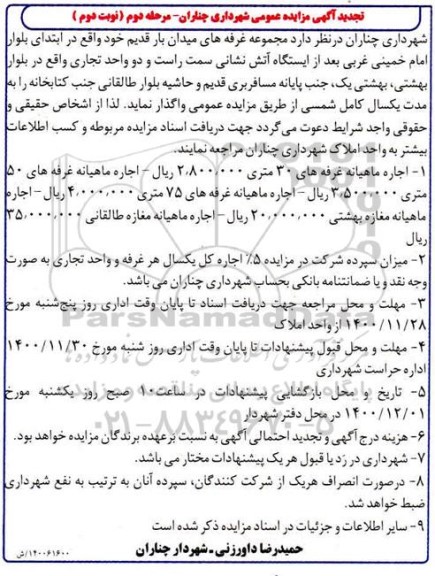 تجدید آگهی مزایده عمومی شهرداری چناران- مرحله دوم (نوبت دوم )
شهرداری چناران درنظر دارد مجموعه غرفه های میدان بار قدیم خود واقع در ابتدای بلوار
امام خمینی غربی بعد از ایستگاه آتش نشانی سمت راست و دو واحد تجاری واقع در بلوار
بهشتی، بهشتی یک، جنب پایانه مسافربری قدیم و حاشیه بلوار طالقانی جنب کتابخانه را به
مدت یکسال کامل شمسی از طریق مزایده عمومی واگذار نماید. لذا از اشخاص حقیقی و
حقوقی واجد شرایط دعوت می‌گردد جهت دریافت اسناد مزایده مربوطه و کسب اطلاعات
بیشتر به واحد املاک شهرداری چناران مراجعه نمایند.
۱- اجاره ماهیانه غرفه های ۳۰ متری ۲/۸۰۰/۰۰۰ ریال - اجاره ماهیانه غرفه های ۵۰
متری ۳/۵۰۰/۰۰۰ ریال- اجاره ماهیانه غرفه های ۷۵ متری ۴/۰۰۰/۰۰۰ ریال - اجاره
ماهیانه مغازه بهشتی ۲۰/۰۰۰/۰۰۰ ریال- اجاره ماهیانه مغازه طالقانی ۳۵/۰۰۰/۰۰۰
ریال
۲- میزان سپرده شرکت در مزایده ۵٪ اجاره کل یکسال هر غرفه و واحد تجاری به صورت
وجه نقد و یا ضمانتنامه بانکی بحساب شهرداری چناران می باشد.
۳- مهلت و محل مراجعه جهت دریافت اسناد تا پایان وقت اداری روز پنج‌شنبه مورخ
۱۴۰۰/۱۱/۲۸ از واحد املاک
ParsNamadData
۴- مهلت و محل قبول پیشنهادات تا پایان وقت اداری روز شنبه مورخ ۱۴۰۰/۱۱/۳۰
اداره حراست شهرداری
۵- تاریخ و محل بازگشایی پیشنهادات در ساعت۱۰ صبح روز یکشنبه مورخ
۱۴۰۰/۱۲/۰۱ در محل دفتر شهردار
۰۲۱-۸۸۳۴۹۶۷۰-۵
۶- هزینه درج آگهی و تجدید احتمالی آگهی به نسبت برعهده برندگان مزایده خواهد بود.
۷- شهرداری در رَد یا قبول هر یک پیشنهادات مختار می باشد.
۸- درصورت انصراف هریک از شرکت کنندگان، سپرده آنان به ترتیب به نفع شهرداری
ضبط خواهد شد.
۹- سایر اطلاعات و جزئیات در اسناد مزایده ذکر شده است
حمیدرضا داورزنی ـ شهردار چناران
۱۴۰۰۶۱۶۰۰/ش